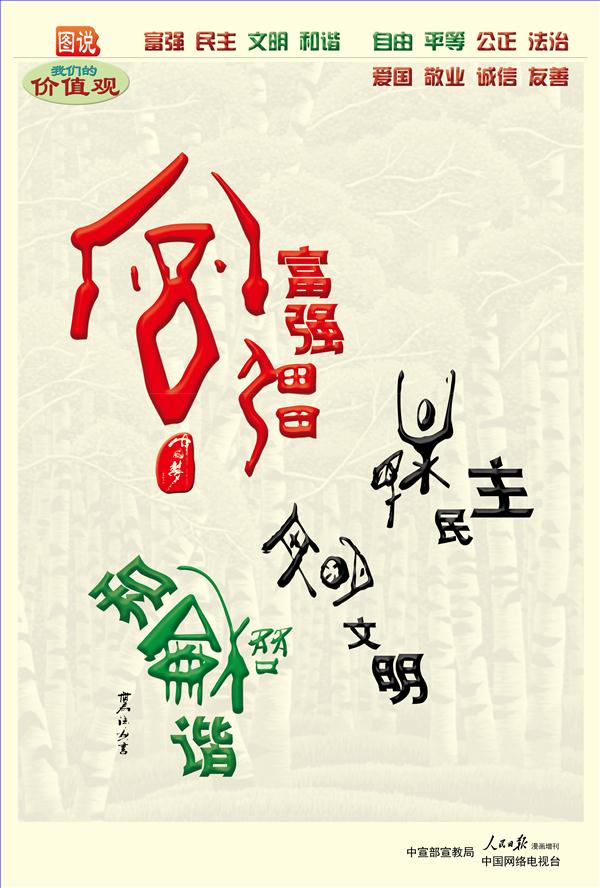 图说
我们的
价值观
富强 民主 文明 和谐 自由 平等 公正 法治
爱国 敬业 诚信 友善
富强
中国梦
民主
文明
和谐
中宣部宣教局
人民日报 漫画增刊
中国网络电视台